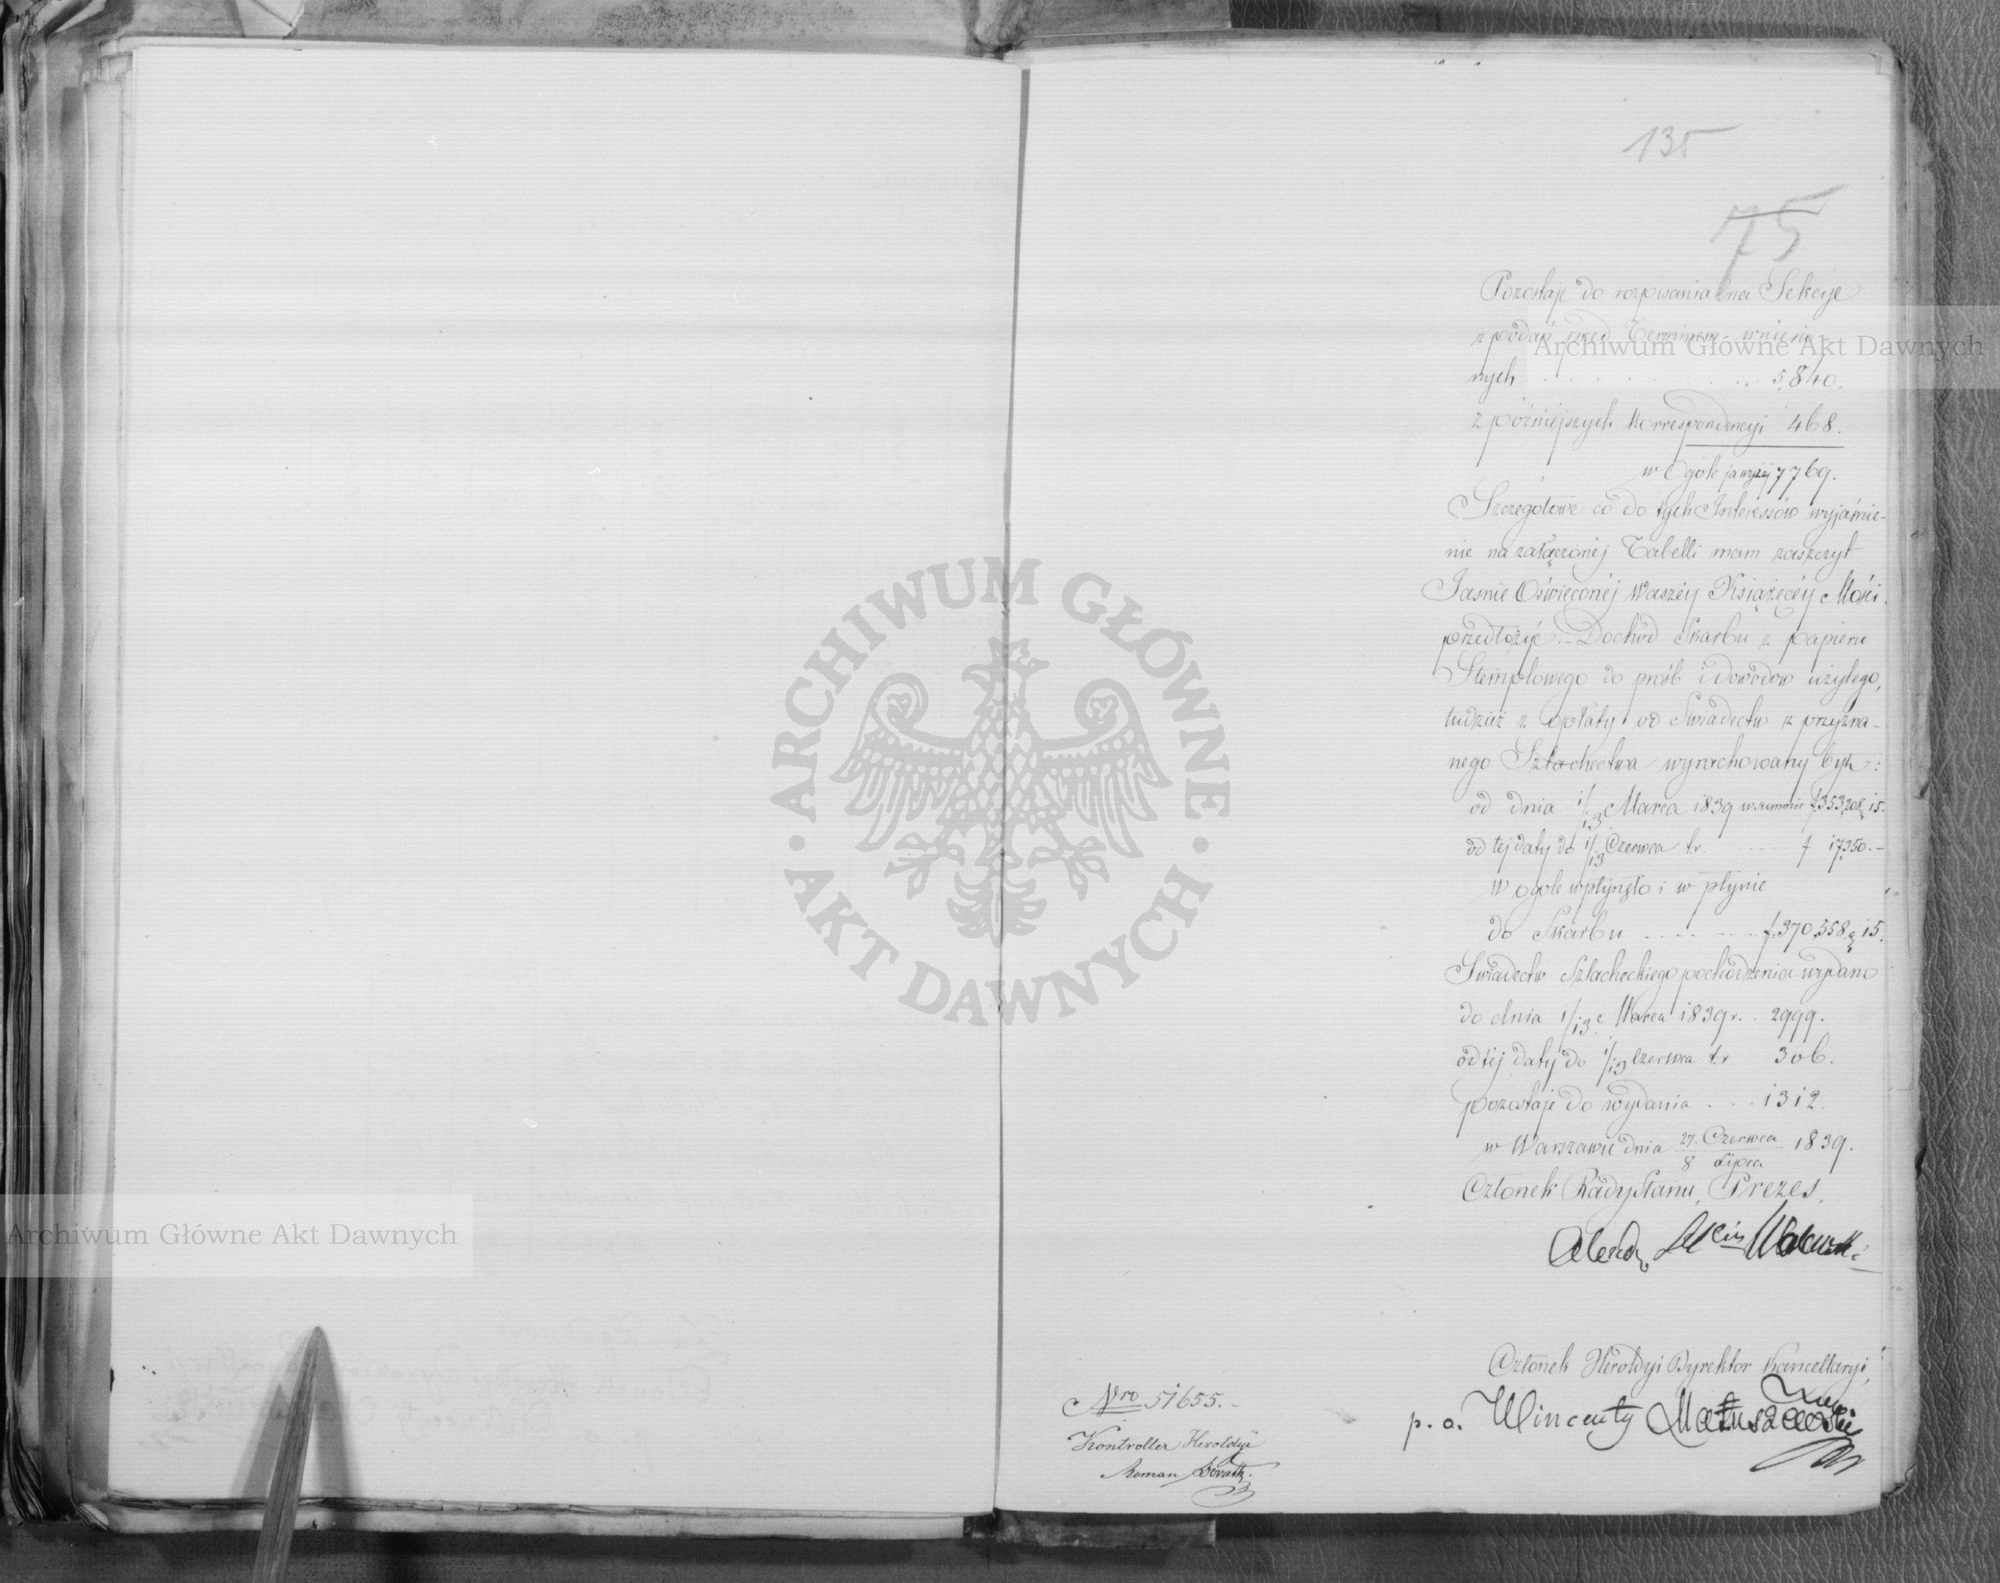 135
75
Pozostaje do rozpisania na Sekcye
z podań przed Terminem wniesio
nych . . . . . . . 5,840.
z późniejszych Korrespondencyi 468.
w Ogóle ja wyżej 7769.
Szczegółowe co do tych Interessów wyjaśnie-
nie na załączonéj Tabelli mam zaszczyt
Jaśnie Oświeconéj Waszéy Xsiążęcéy Mości
przedłożyć. Dochód Skarbu z papieru
Stemplowego do prósb i dowodów użytego,
tudzież z opłaty od Świadectw z przyzna-
nego Szlachectwa wyrachowany był:
od dnia 1/13 Marca 1839 w summie f 353,208 g 15.
od téj daty do 1/13 Czerwca t.r. . . . f 17,350.—
W ogole wpłynęło i wpłynie
do Skarbu . . . . . . f. 370,558. g 15.
Świadectw Szlacheckiego pochodzenia wydano
do dnia 1/13 Marca 1839 r. . 2999.
od téj daty do 1/13 Czerwca t.r 306.
pozostaje do wydania . . . 1312.
w Warszawie dnia 27. Czerwca / 8 Lipca 1839.
Członek Rady Stanu, Prezes,
Członek Heroldyi Dyrektor Kancellaryi,
p. o. Wincenty Matuszewski
Nro 51655.-
Kontroller Heroldyi
Roman
Archiwum Główne Akt Dawnych
Archiwum Główne Akt Dawnych
ARCHIWUM GŁÓWNE
AKT DAWNYCH